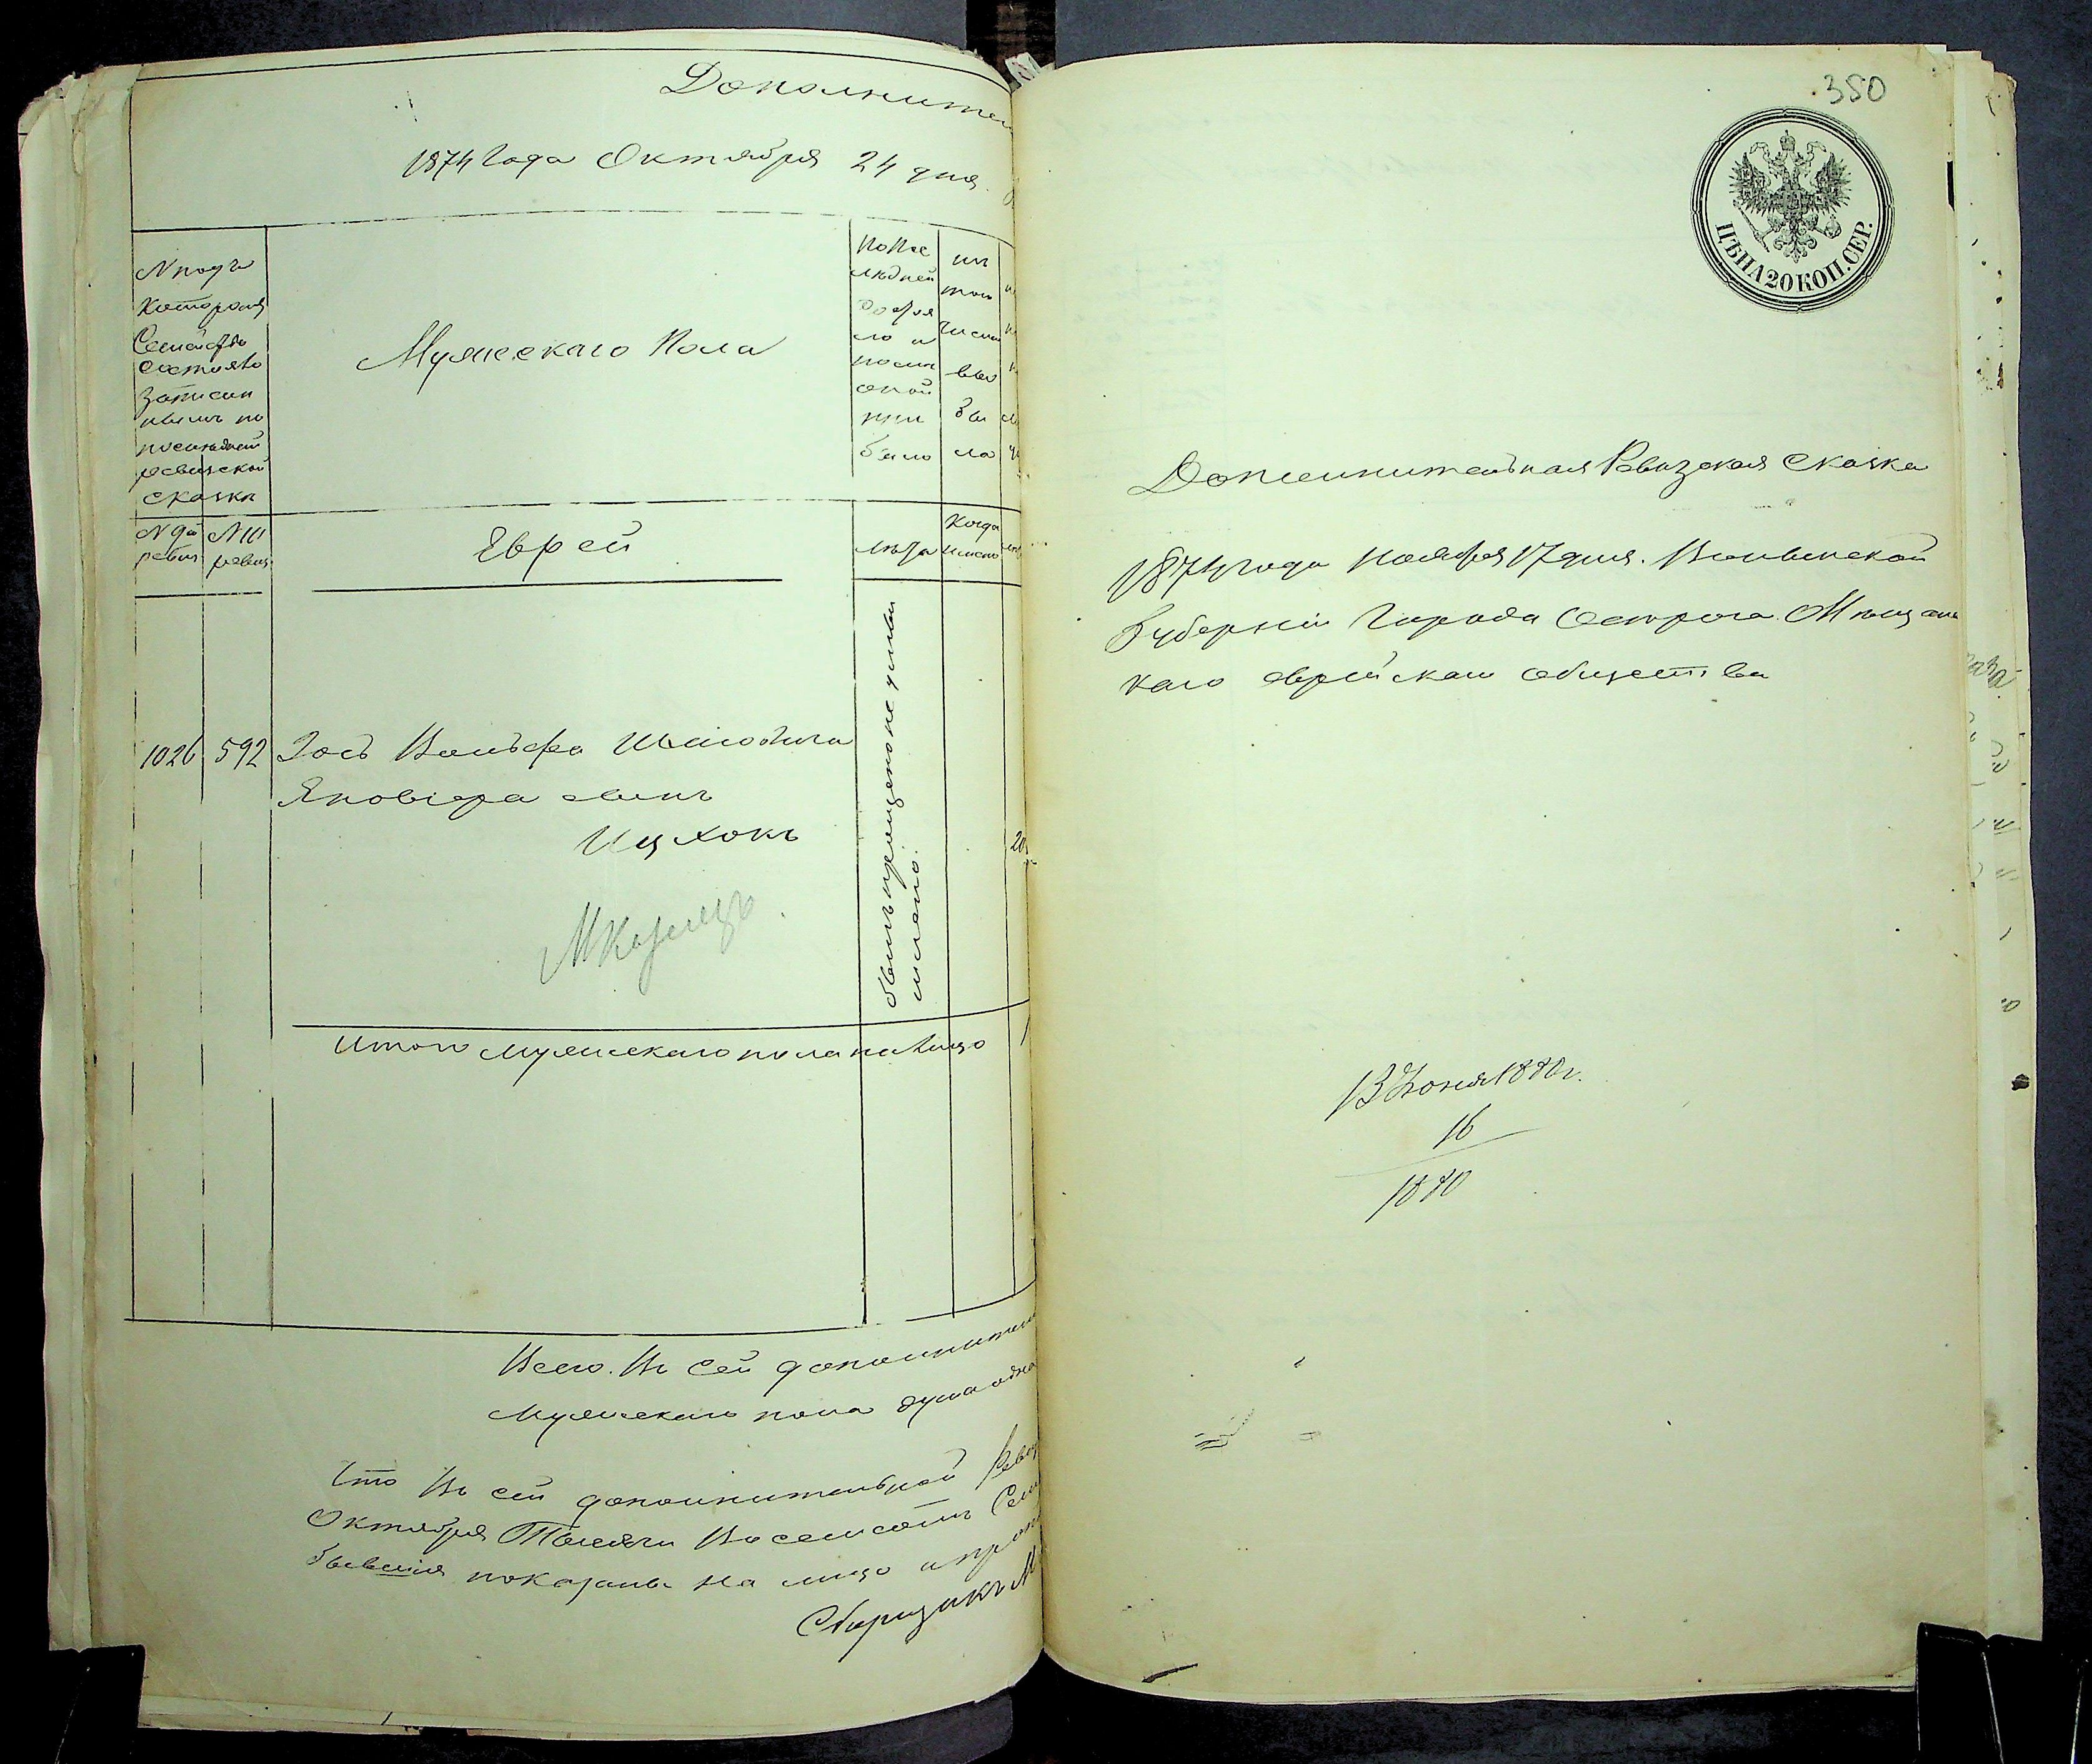 Дополнител
1874 года Октября 24 дня.
№ подъ
которомъ
Семейство
состояло
записан
нымъ по
последней
ревизской
сказки
Мужескаго Пола
По По
следней
было
изъ
того
числа
вы
бы
ло
№ 9й
ревиз
№ 10
ревиз
Еврей
лета
Когда
именно
1026 592
Иось Вольфа
сынъ
Ицхокъ
20
бывъ пропущено не
Итого мужескаго пола налицо 1
Всего. Въ сей дополнител
мужескаго пола душа одна
Что Въ сей дополнительной Ревиз
Октября Тысяча Восемсотъ Сем
бывшия показаны на лицо и проп
Сборщикъ М
350
ЦѢНА 20 КОП. СЕР.
Дополнительная Ревизская Сказка
1874 года Ноября 17 дня. Волынской
Губернiи Города Острога Мещанс
каго еврейскаго общества
13 Июня 1880 г.
16
1880